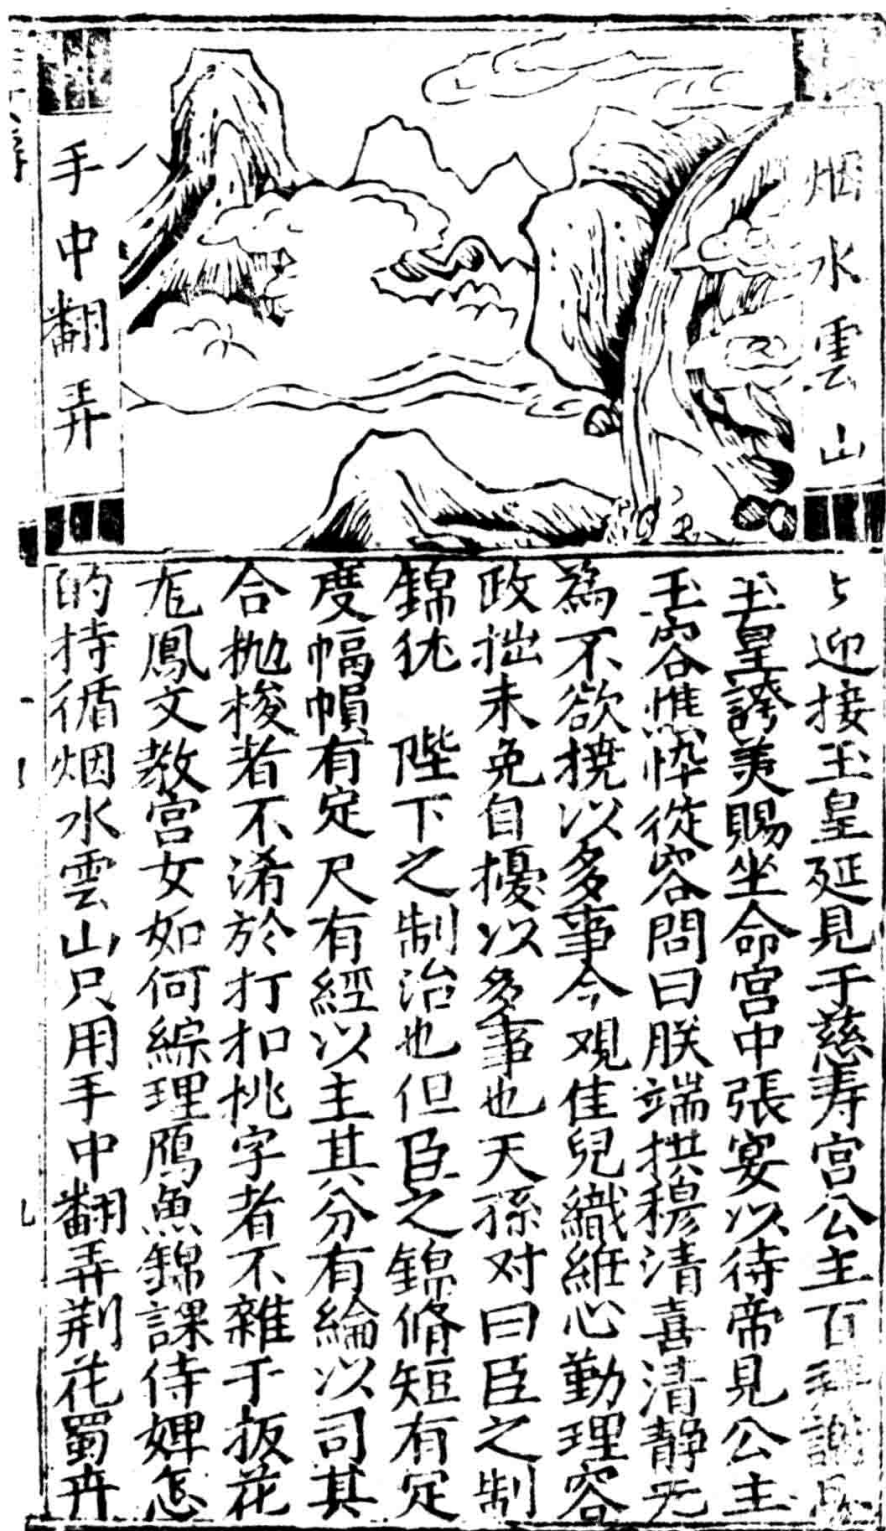 烟水雲山
手中翻弄
〻迎接玉皇延見于慈寿宫公主百拜謝恩
玉皇誇美賜坐命宫中張宴以待帝見公主
玉容憔悴從容問曰朕端拱穆清喜清静无
為不欲撓以多事今观佳兒織絍心勤理容
政拙未免自擾以多事也天孫对曰臣之制
錦犹 陛下之制治也但臣之錦脩短有定
度幅幀有定尺有經以主其分有綸以司其
合抛梭者不淆於打扣桃字者不雜于扳花
龙鳳文教宫女如何綜理鴈魚錦課侍婢怎
的持循烟水雲山只用手中翻弄荆花蜀卉